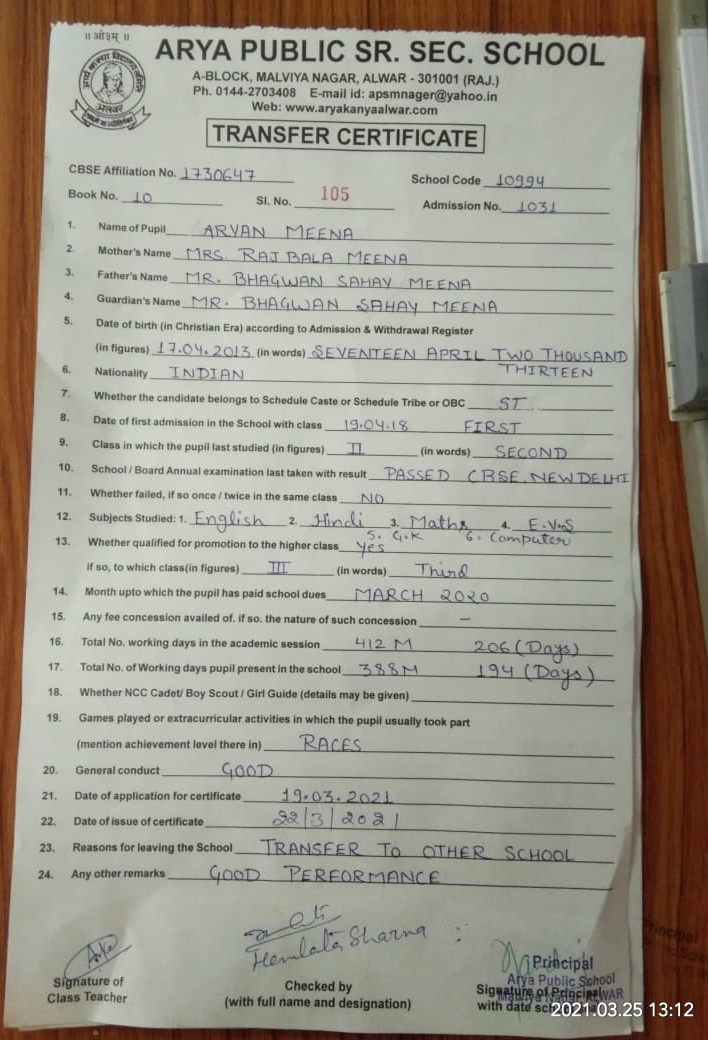 ॥ ओ३म् ॥
ARYA PUBLIC SR. SEC. SCHOOL
A-BLOCK, MALVIYA NAGAR, ALWAR - 301001 (RAJ.)
Ph. 0144-2703408 E-mail id: apsmnager@yahoo.in
Web: www.aryakanyaalwar.com
अलवर
TRANSFER CERTIFICATE
CBSE Affiliation No. 1730647 School Code 10994
Book No. 10 Sl. No. 105 Admission No. 1031
1. Name of Pupil ARYAN MEENA
2. Mother's Name MRS. RAJ BALA MEENA
3. Father's Name MR. BHAGWAN SAHAY MEENA
4. Guardian's Name MR. BHAGWAN SAHAY MEENA
5. Date of birth (in Christian Era) according to Admission & Withdrawal Register
(in figures) 17.04.2013 (in words) SEVENTEEN APRIL TWO THOUSAND
THIRTEEN
6. Nationality INDIAN
7. Whether the candidate belongs to Schedule Caste or Schedule Tribe or OBC ST
8. Date of first admission in the School with class 19.04.18 FIRST
9. Class in which the pupil last studied (in figures) II (in words) SECOND
10. School / Board Annual examination last taken with result PASSED CBSE, NEW DELHI
11. Whether failed, if so once / twice in the same class NO
12. Subjects Studied: 1. English 2. Hindi 3. Maths 4. E.V.S
5. G.K 6. Computer
13. Whether qualified for promotion to the higher class Yes
if so, to which class(in figures) III (in words) Third
14. Month upto which the pupil has paid school dues MARCH 2020
15. Any fee concession availed of. if so. the nature of such concession –
16. Total No. working days in the academic session 412 M 206 (Days)
17. Total No. of Working days pupil present in the school 388M 194 (Days)
18. Whether NCC Cadet/ Boy Scout / Girl Guide (details may be given)
19. Games played or extracurricular activities in which the pupil usually took part
(mention achievement level there in) RACES
20. General conduct GOOD
21. Date of application for certificate 19.03.2021
22. Date of issue of certificate 22/3/2021
23. Reasons for leaving the School TRANSFER TO OTHER SCHOOL
24. Any other remarks GOOD PERFORMANCE
Hemlata Sharma
Signature of
Class Teacher
Checked by
(with full name and designation)
Principal
Arya Public School
Malviya Nagar, ALWAR
Signature of Principal
with date
2021.03.25 13:12